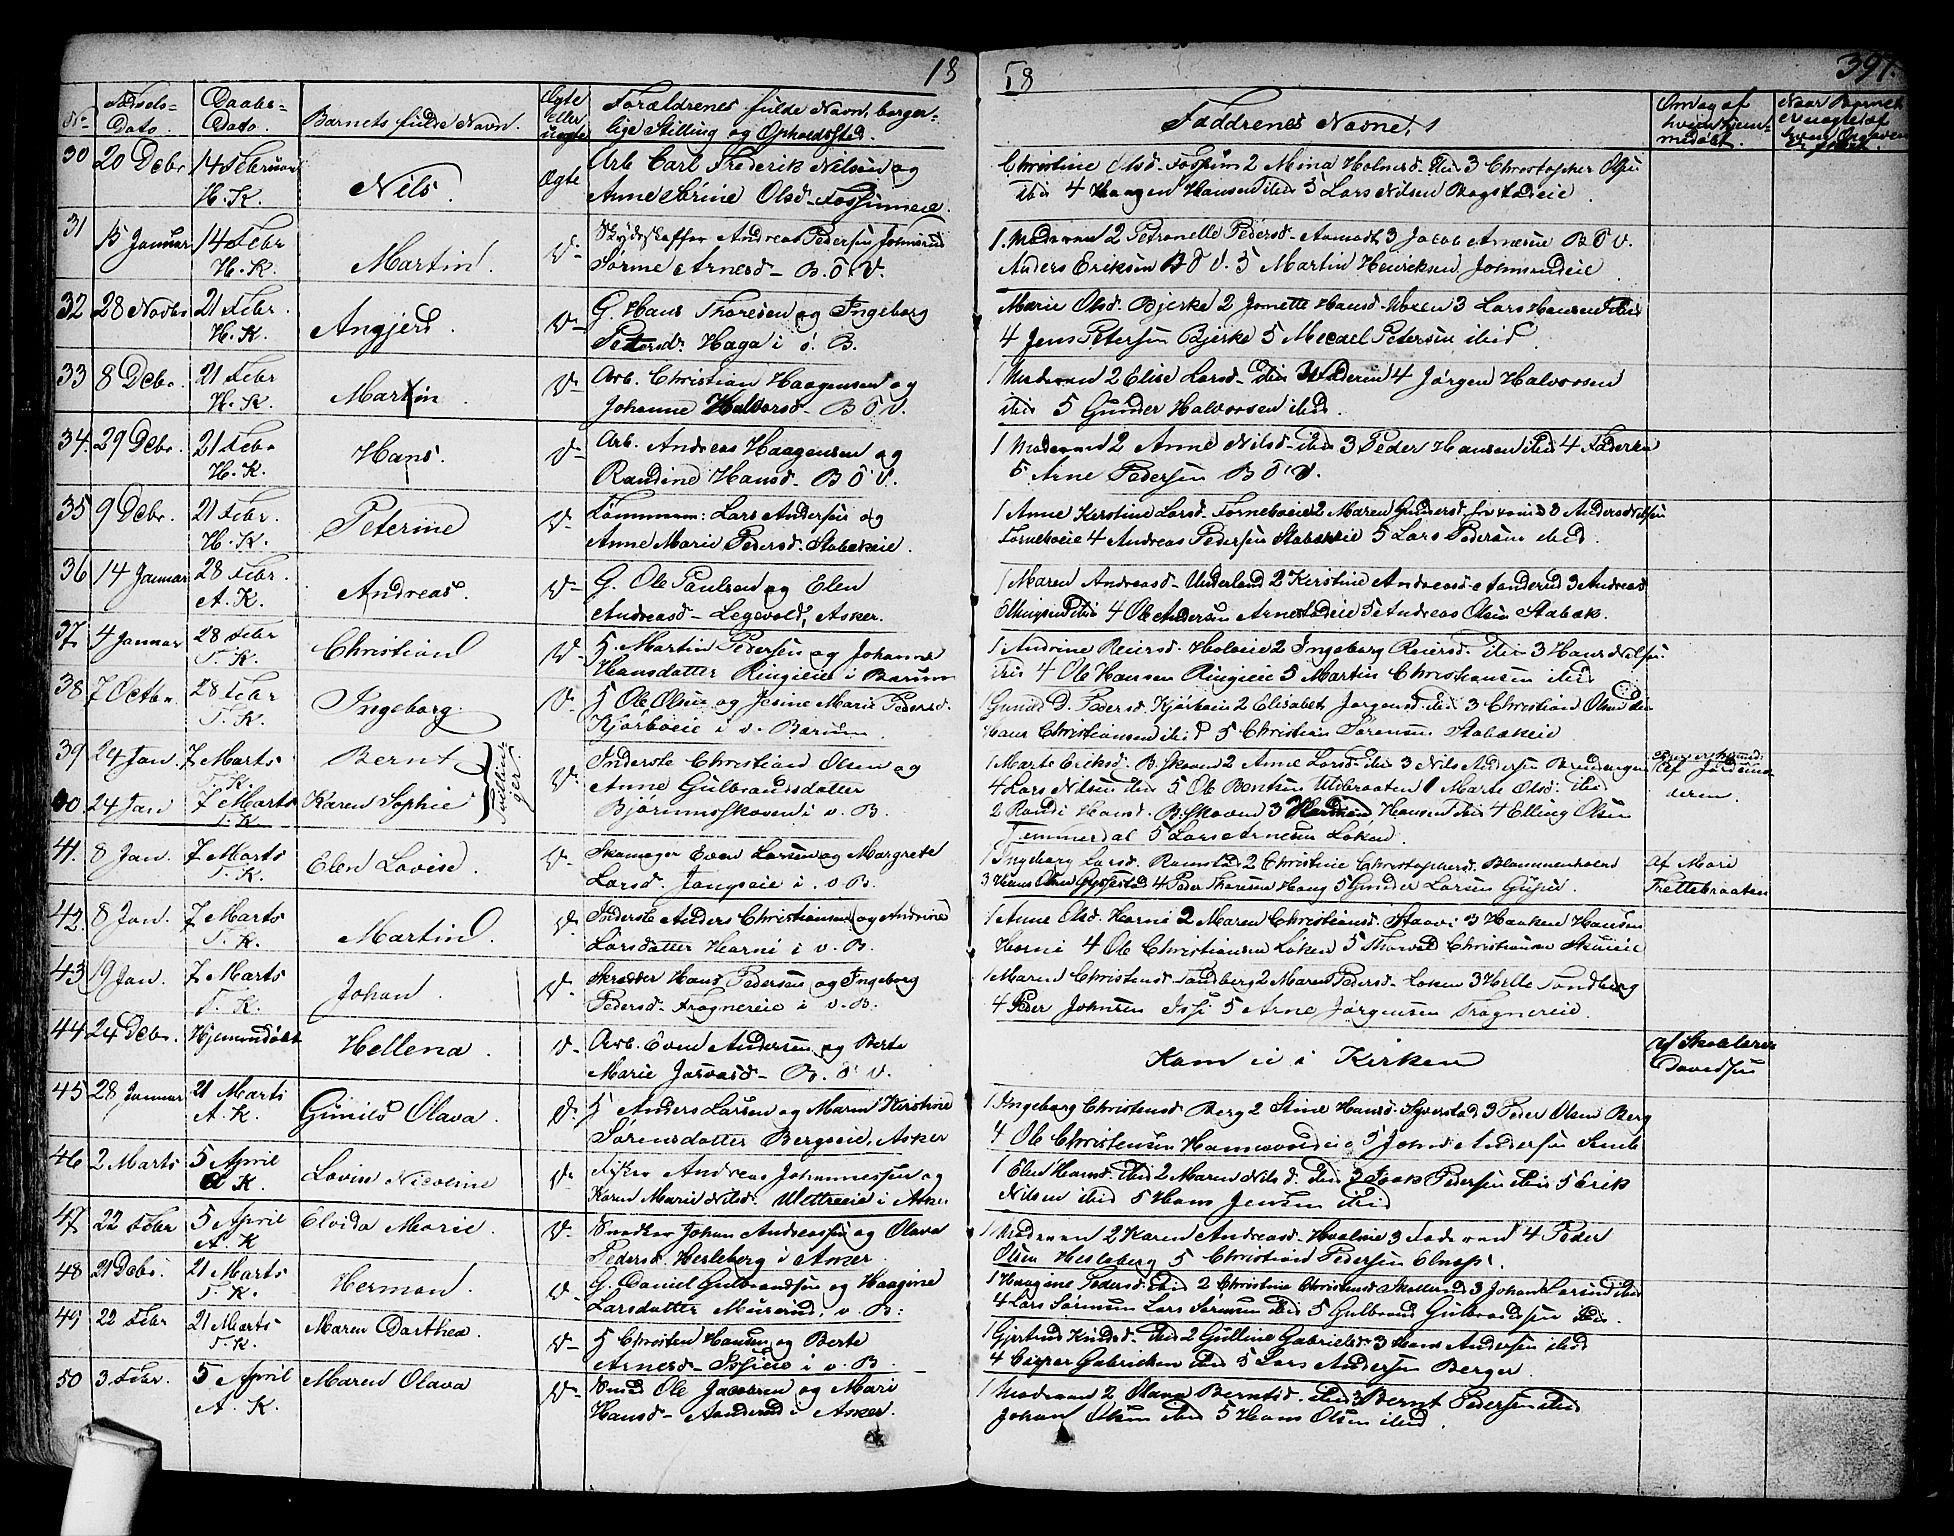 18
58
397.
No
Fødsels-
Dato.
Daabs-
Dato.
Barnets fulde Navn.
Ægte
eller
uægte
Forældrenes fulde Navn, borger-
lige Stilling og Opholdssted.
Faddrenes Navne.
Om og af
hvem hjem-
medøbt.
30 20 Decbr 14 Februar
H. K.
Nils.
Ægte
Arb. Carl Frederik Nilsen og
Anne Olsd. Fossumeie.
Christine Olsd. Fossum 2 Mina Holmsd. ibid 3 Christopher Olsen
ibid 4 Haagen Hansen ibid 5 Lars Nilsen Bogstadeie
31 15 Januar 14 Febr
H. K.
Martin.
D-
Skydsskaffer Andreas Pedersen Johnsrud
Arnesd. B. Ø. V.
1. Moderen 2 Petronelle Pedersd. Aamodt 3 Jacob Arnesen B Ø V.
Anders Eriksen B Ø V. 5 Martin Henriksen Johnsrudeie
32 28 Novbr 21 Febr.
H. K.
Angjerd.
D-
G. Hans Thoresen og Ingeborg
Petersd. Haga i ø. B.
Marie Olsd. Bjerke 2 Jonette Hansd. Voxen 3 Lars Hansen ibid
4 Jens Petersen Bjerke 5 Micael Petersen ibid
33 8 Decbr. 21 Febr
H. K.
Martin.
D-
Arb. Christian Haagensen og
Johanne Halvorsd. B Ø V.
1 Moderen 2 Elise Larsd. ibid 3 Faderen 4 Jørgen Halvorsen
ibid 5 Gunder Halvorsen ibid.
34. 29 Decbr. 21 Febr
H. K.
Hans.
D-
Arb. Andreas Haagensen og
Randine Hansd. B Ø V.
1 Moderen 2 Anne Nilsd. ibid 3 Peder Hansen ibid 4 Faderen
5 Arne Pedersen B Ø V.
35 9 Decbr. 21 Febr.
H. K.
Peterine
D-
Tømmerm: Lars Andersen og
Anne Marie Pedersd. Stabækeie.
1 Anne Kirstine Larsd. Tornebøeie 2 Maren Gundersd. 3 Anders Nilsen
Tornebøeie 4 Andreas Pedersen Stabækeie 5 Lars Pedersen ibid.
36 14 Januar 28 Febr.
A. K.
Andreas.
D-
G. Ole Paulsen og Elen
Andreasd. Legevold, Asker.
1 Maren Andreasd. Underland 2 Kirstine Andreasd. Aanderud 3 Andreas
ibid 4 Ole Andersen Arnestadeie 5 Andreas Olsen Stabæk.
37 4 Januar 28 Febr
T. K.
Christian
D-
H. Martin Pedersen og Johanne
Hansdatter Ringieie i Bærum
1 Andrine Reiersd. Holeie 2 Ingeborg Reiersd. ibid 3 Hans Nilsen
ibid 4 Ole Hansen Ringieie 5 Martin Christiansen ibid
38 7 Octbr 28 Febr
T. K.
Ingeborg.
D-
H Ole Olsen og Josine Marie Pedersd.
Kjørboeie i v. Bærum.
Gunild D. Pedersd. Kjørboeie 2 Elisabet Jørgensd. ibid 3 Christian Olsen ibid
Hans Christiansen ibid 5 Christian Sørensen Stabækeie
39 24 Jan 7 Marts
T. K.
Bernt
40 24 Jan 7 Marts
T. K.
Karen Sophie
Tvillin-
ger.
D-
Inderste Christian Olsen og
Anne Gulbrandsdatter
Bjørumsskoven i v. B.
1 Marte Eriksd. B. skoven 2 Anne Larsd. ibid 3 Nils Andersen Brendengen
4 Lars Nilsen ibid 5 Ole Bentsen Udebraaten 1 Marte Olsd. ibid
2 Randi Hansd. B. skoven 3 Herman Hansen ibid 4 Elling Olsen
Temmerdal 5 Lars Arnesen Løken
Af Jordmo-
deren.
41. 8 Jan. 7 Marts
T. K.
Elen Lovise.
D-
Skomager Even Larsen og Margrete
Larsd. Jongseie i v. B.
1 Ingeborg Larsd. Ramstad 2 Christine Christophersd. Blommenholm
3 Hans Olsen Gyssestad 4 Peder Thoresen Haug 5 Gunder Larsen
Af Mari
Trettebraaten
42. 8 Jan. 7 Marts
T. K.
Martin.
D-
Inderste Anders Christiansen og Andrine
Larsdatter Horni i v. B.
1 Anne Olsd. Horni 2 Maren Christiansd. Staavi 3 Haaken Hansen
Horni 4 Ole Christiansen Løken 5 Thorvald Christiansen
43 19 Jan. 7 Marts
T. K.
Johan.
D-
Skredder Hans Pedersen og Ingeborg
Pedersd. Frognereie i v. B.
1 Maren Christensd. Tandberg 2 Maren Pedersd. Løken 3 Helle Tandberg
4 Peder Johnsen Isi 5 Arne Jørgensen Frognereie.
44 24 Decbr. Hjemmedøbt
Hellena.
D-
Arb. Even Andersen og Berte
Marie B. Ø V.
Kom ei i Kirken
af Skolelærer
Davidsen
45 28 Januar 21 Marts
A. K.
Gunild Olava.
D-
H Anders Larsen og Maren Kirstine
Sørensdatter Bergseie, Asker
1 Ingeborg Christensd. Berg 2 Stine Hansd. Syverstad 3 Peder Olsen Berg
4 Ole Christensen 5 John Andersen
46 2 Marts 5 April
A K.
Lovise Nicoline
D-
Fisker Andreas Johannessen og
Karen Marie Nilsd. Vettreeie i Asker
1 Elen Hansd. ibid 2 Maren Nilsd. ibid 3 Isak Pedersen ibid 5 Erik
Nilsen ibid 5 Hans Jensen ibid
47 22 Febr 5 April
A. K
Elvida Marie.
D-
Snedker Johan Andreassen og Olava
Pedersd. Hesleberg i Asker
1 Moderen 2 Karen Andreasd. 3 Faderen 4 Peder
Olsen Hesleberg 5 Christian Pedersen
48 21 Decbr. 21 Marts
T. K.
Herman.
D-
G. Daniel Gulbrandsen og Haagine
Larsdatter v. B:
1 Haagine Pedersd. ibid 2 Christine Christensd. 3 Johan Larsen ibid
4 Lars Sørensen Lars Sørensen ibid 5 Gulbrand Gulbrandsen ibid.
49 22 Febr 21 Marts
T. K.
Maren Dorthea.
D-
H Christen Hansen og Berte
Arnesd. Isieie i v. B.
1 Gjertrud Knudsd. ibid 2 Gulline Gabrielsd. 3 Hans Andersen ibid
4 Casper Gabrielsen ibid 5 Lars Andersen Berger.
50 3 Febr. 5 April
A. K.
Maren Olava
D-
Smed Ole Jacobsen og Mari
Hansd. Aanderud i Asker.
1 Moderen 2 Olava Berntsd. ibid 3 Bernt Pedersen ibid
Johan Olsen ibid 5 Hans Olsen ibid.